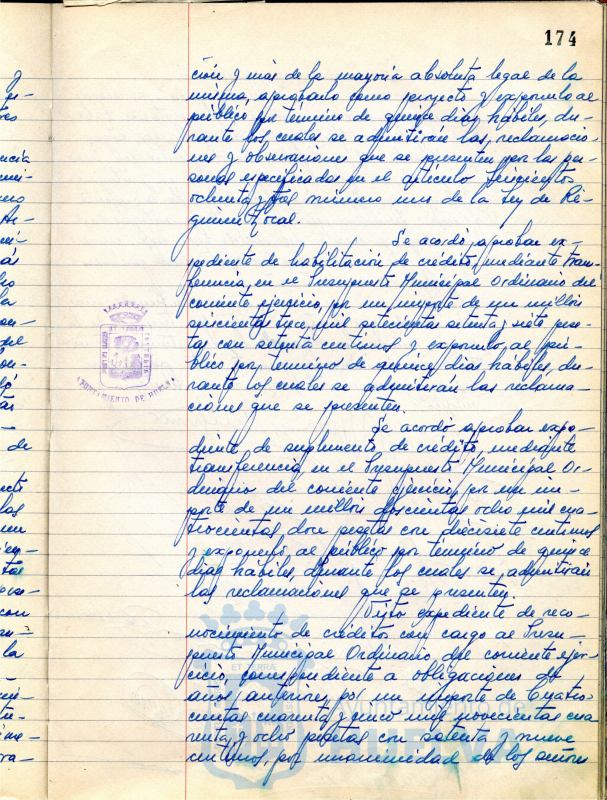 174
ción y más de la mayoría absoluta legal de la
misma, aprobarlo como proyecto y exponerlo al
público, por término de quince días hábiles, du-
rante los cuales se admitirán las reclamacio-
nes y observaciones que se presenten por las per-
sonas especificadas en el artículo seiscientos
ochenta y tres número uno de la Ley de Ré-
gimen Local.
Se acordó aprobar ex-
pediente de habilitación de crédito, mediante trans-
ferencia, en el Presupuesto Municipal Ordinario del
corriente ejercicio, por un importe de un millón
seiscientas trece mil setecientas setenta y siete pese-
tas con setenta céntimos y exponerlo al pú-
blico por término de quince días hábiles, du-
rante los cuales se admitirán las reclama-
ciones que se presenten.
Se acordó aprobar expe-
diente de suplemento de crédito, mediante
transferencia, en el Presupuesto Municipal Or-
dinario del corriente ejercicio, por un im-
porte de un millón doscientas ocho mil cua-
trocientas doce pesetas con diecisiete céntimos
y exponerlo al público por término de quince
días hábiles, durante los cuales se admitirán
las reclamaciones que se presenten.
Visto expediente de reco-
nocimiento de créditos con cargo al Presu-
puesto Municipal Ordinario del corriente ejer-
cicio, correspondiente a obligaciones de
años anteriores, por un importe de Cuatro-
cientas cuarenta y cinco mil novecientas cua-
renta y ocho pesetas con setenta y nueve
céntimos, por unanimidad de los señores
AYUNTAMIENTO DE HUELVA
ET TERRA
Ayuntamiento de
HUELVA